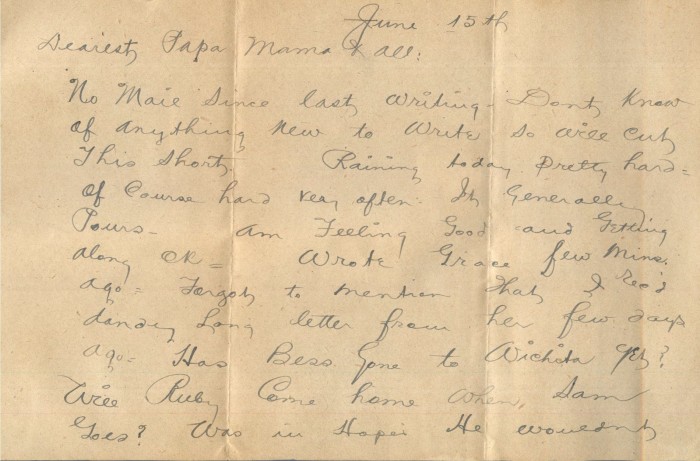 June 15th
Dearest Papa Mama & all:
No Mail Since last writing - Dont Know
of anything New to Write so will cut
This Short. Raining today pretty hard =
of Course hard very often - It Generally
Pours - am Feeling Good and Getting
along OK = Wrote Grace few Mins.
ago = Forgot to mention that I Rec'd
dandy Long letter from her few days
ago = Has Bess gone to Wichita yet?
Will Ruby Come home when Sam
Goes? Was in Hopes He wouldnt